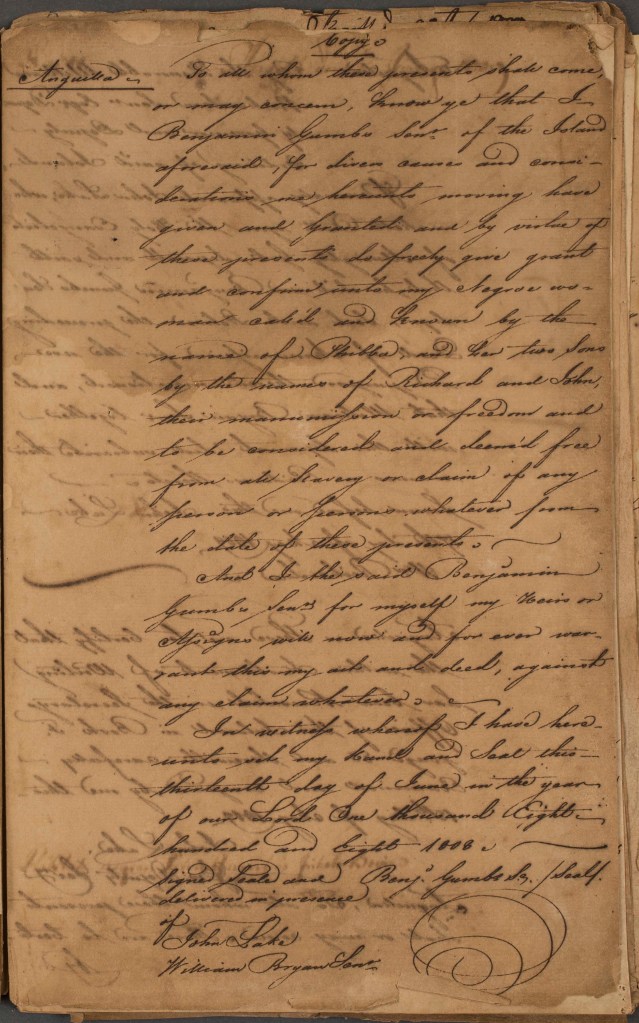 Copy.
Anguilla
To all whom these presents shall come,
or may concern, Know ye that I
Benjamin Gumbs Senr. of the Island
aforesaid, for divers causes and consi-
derations me hereunto moving have
given and Granted and by virtue of
these presents do freely give grant
and confirm unto my Negroe wo-
man call'd and known by the
name of Phibba, and her two Sons
by the names of Richard and John,
their manumission or freedom and
to be considered and deem'd free
from all Slavery or claim of any
person or persons whatever from
the date of these presents.
And I the said Benjamin
Gumbs Senr. for myself my Heirs or
Assigns will now and for ever war-
rant this my act and deed, against
any claim whatever.
In witness whereof I have here-
unto set my Hand and Seal this
thirteenth day of June in the year
of our Lord One thousand Eight-
hundred and Eight 1808.
Signed Seald and Benj. Gumbs Sr. /Seal/.
delivered in presence
of
John Lake
William Bryan Senr.